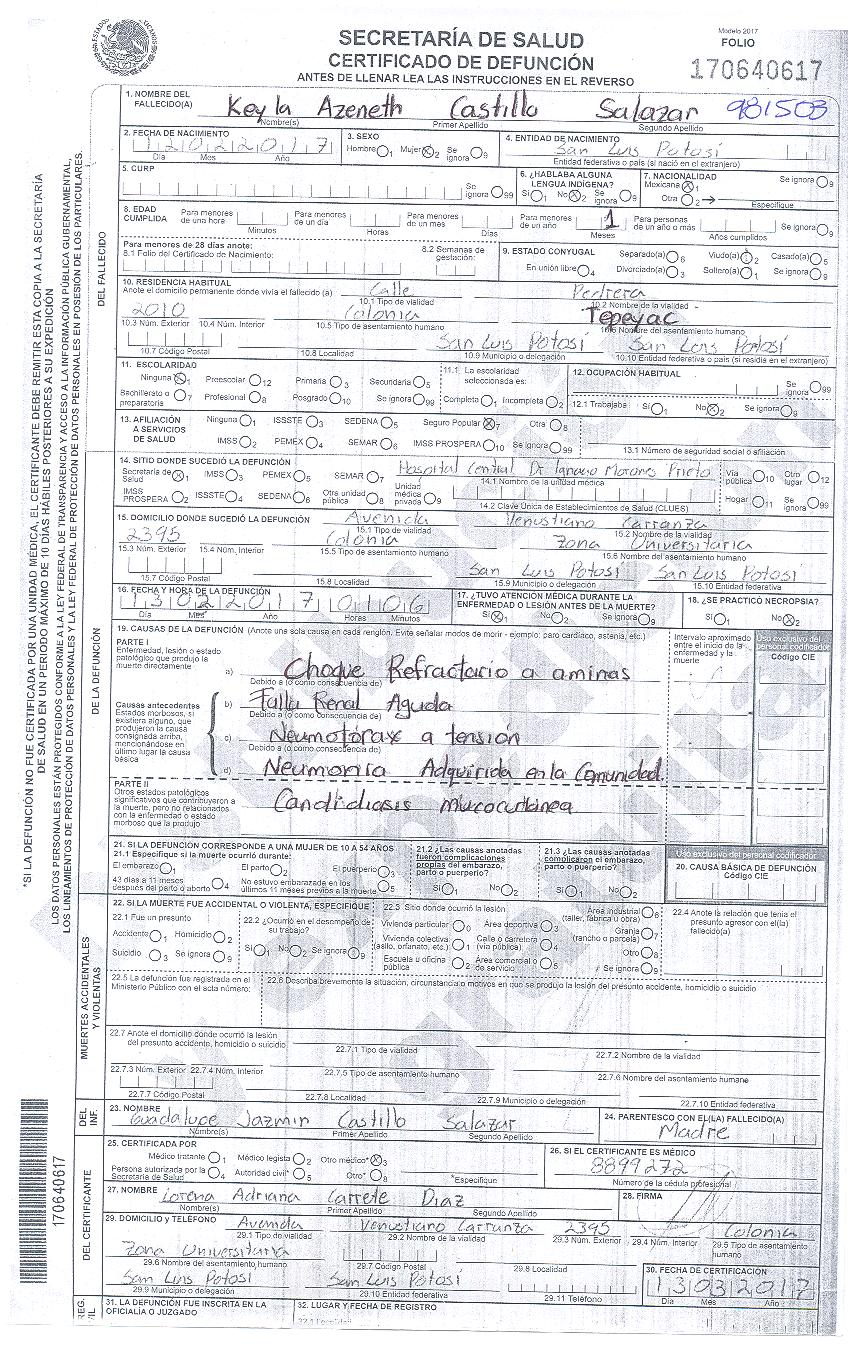 Modelo 2017
SECRETARÍA DE SALUD
CERTIFICADO DE DEFUNCIÓN
ANTES DE LLENAR LEA LAS INSTRUCCIONES EN EL REVERSO
FOLIO
170640617
1. NOMBRE DEL FALLECIDO(A) Keyla Azeneth Castillo Salazar 981503
Nombre(s) Primer Apellido Segundo Apellido
2. FECHA DE NACIMIENTO 12022017 3. SEXO Hombre 1 Mujer 2 Se ignora 9 4. ENTIDAD DE NACIMIENTO San Luis Potosí
Día Mes Año Entidad federativa o país (si nació en el extranjero)
5. CURP Se ignora 99 6. ¿HABLABA ALGUNA LENGUA INDÍGENA? Sí 1 No 2 Se ignora 9 7. NACIONALIDAD Mexicana 1 Otra 2 Se ignora 9
Especifique
8. EDAD CUMPLIDA Para menores de una hora Minutos Para menores de un día Horas Para menores de un mes Días Para menores de un año 1 Meses Para personas de un año o más Años cumplidos Se ignora 9
Para menores de 28 días anote:
8.1 Folio del Certificado de Nacimiento: 8.2 Semanas de gestación:
9. ESTADO CONYUGAL Separado(a) 6 Viudo(a) 2 Casado(a) 5
En unión libre 4 Divorciado(a) 3 Soltero(a) 1 Se ignora 9
10. RESIDENCIA HABITUAL
Anote el domicilio permanente donde vivía el fallecido (a) Calle Pedrera
10.1 Tipo de vialidad 10.2 Nombre de la vialidad
2010 Colonia Tepeyac
10.3 Núm. Exterior 10.4 Núm. Interior 10.5 Tipo de asentamiento humano 10.6 Nombre del asentamiento humano
San Luis Potosí San Luis Potosí
10.7 Código Postal 10.8 Localidad 10.9 Municipio o delegación 10.10 Entidad federativa o país (si residía en el extranjero)
11. ESCOLARIDAD
Ninguna 1 Preescolar 12 Primaria 3 Secundaria 5
Bachillerato o preparatoria 7 Profesional 8 Posgrado 10 Se ignora 99
11.1 La escolaridad seleccionada es: Completa 1 Incompleta 2
12. OCUPACIÓN HABITUAL Se ignora 99
12.1 Trabajaba Sí 1 No 2 Se ignora 9
13. AFILIACIÓN A SERVICIOS DE SALUD
Ninguna 1 ISSSTE 3 SEDENA 5 Seguro Popular 7 Otra 8
IMSS 2 PEMEX 4 SEMAR 6 IMSS PROSPERA 10 Se ignora 99
13.1 Número de seguridad social o afiliación
14. SITIO DONDE SUCEDIÓ LA DEFUNCIÓN Hospital Central Dr Ignacio Morones Prieto
Secretaría de Salud 1 IMSS 3 PEMEX 5 SEMAR 7 14.1 Nombre de la unidad médica Vía pública 10 Otro lugar 12
IMSS PROSPERA 2 ISSSTE 4 SEDENA 6 Otra unidad pública 8 Unidad médica privada 9 Hogar 11 Se ignora 99
14.2 Clave Única de Establecimientos de Salud (CLUES)
15. DOMICILIO DONDE SUCEDIÓ LA DEFUNCIÓN Avenida Venustiano Carranza
15.1 Tipo de vialidad 15.2 Nombre de la vialidad
2395 Colonia Zona Universitaria
15.3 Núm. Exterior 15.4 Núm. Interior 15.5 Tipo de asentamiento humano 15.6 Nombre del asentamiento humano
San Luis Potosí San Luis Potosí
15.7 Código Postal 15.8 Localidad 15.9 Municipio o delegación 15.10 Entidad federativa
16. FECHA Y HORA DE LA DEFUNCIÓN
Día Mes Año Horas Minutos
17. ¿TUVO ATENCIÓN MÉDICA DURANTE LA ENFERMEDAD O LESIÓN ANTES DE LA MUERTE? Sí 1 No 2 Se ignora 9
18. ¿SE PRACTICÓ NECROPSIA? Sí 1 No 2
19. CAUSAS DE LA DEFUNCIÓN (Anote una sola causa en cada renglón. Evite señalar modos de morir - ejemplo: paro cardiaco, astenia, etc.)
Intervalo aproximado entre el inicio de la enfermedad y la muerte
Uso exclusivo del personal codificador
Código CIE
PARTE I
Enfermedad, lesión o estado patológico que produjo la muerte directamente
a) Choque Refractario a aminas
Debido a (o como consecuencia de)
Causas antecedentes
Estados morbosos, si existiera alguno, que produjeron la causa consignada arriba, mencionándose en último lugar la causa básica
b) Falla Renal Aguda
Debido a (o como consecuencia de)
c) Neumotórax a tensión
Debido a (o como consecuencia de)
d) Neumonia Adquirida en la Comunidad.
PARTE II
Otros estados patológicos significativos que contribuyeron a la muerte, pero no relacionados con la enfermedad o estado morboso que la produjo
Candidiasis mucocutánea
21. SI LA DEFUNCIÓN CORRESPONDE A UNA MUJER DE 10 A 54 AÑOS
21.1 Especifique si la muerte ocurrió durante:
El embarazo 1 El parto 2 El puerperio 3
43 días a 11 meses después del parto o aborto 4 No estuvo embarazada en los últimos 11 meses previos a la muerte 5
21.2 ¿Las causas anotadas fueron complicaciones propias del embarazo, parto o puerperio? Sí 1 No 2
21.3 ¿Las causas anotadas complicaron el embarazo, parto o puerperio? Sí 1 No 2
Uso exclusivo del personal codificador
20. CAUSA BÁSICA DE DEFUNCIÓN
Código CIE
22. SI LA MUERTE FUE ACCIDENTAL O VIOLENTA, ESPECIFIQUE
22.1 Fue un presunto
Accidente 1 Homicidio 2
Suicidio 3 Se ignora 9
22.2 ¿Ocurrió en el desempeño de su trabajo?
Sí 1 No 2 Se ignora 9
22.3 Sitio donde ocurrió la lesión
Vivienda particular 0 Área deportiva 3 Área industrial (taller, fábrica u obra) 6
Vivienda colectiva (asilo, orfanato, etc.) 1 Calle o carretera (vía pública) 4 Granja (rancho o parcela) 7
Escuela u oficina pública 2 Área comercial o de servicio 5 Otro 8
Se ignora 9
22.4 Anote la relación que tenía el presunto agresor con el(la) fallecido(a)
22.5 La defunción fue registrada en el Ministerio Público con el acta número:
22.6 Describa brevemente la situación, circunstancia o motivos en que se produjo la lesión del presunto accidente, homicidio o suicidio
22.7 Anote el domicilio donde ocurrió la lesión del presunto accidente, homicidio o suicidio
22.7.1 Tipo de vialidad 22.7.2 Nombre de la vialidad
22.7.3 Núm. Exterior 22.7.4 Núm. Interior 22.7.5 Tipo de asentamiento humano 22.7.6 Nombre del asentamiento humano
22.7.7 Código Postal 22.7.8 Localidad 22.7.9 Municipio o delegación 22.7.10 Entidad federativa
23. NOMBRE Guadalupe Jazmin Castillo Salazar
Nombre(s) Primer Apellido Segundo Apellido
24. PARENTESCO CON EL(LA) FALLECIDO(A)
Madre
25. CERTIFICADA POR
Médico tratante 1 Médico legista 2 Otro médico* 3
Persona autorizada por la Secretaría de Salud 4 Autoridad civil* 5 Otro* 8
*Especifique
26. SI EL CERTIFICANTE ES MÉDICO
8899272
Número de la cédula profesional
27. NOMBRE Lorena Adriana Carrete Diaz
Nombre(s) Primer Apellido Segundo Apellido
28. FIRMA
29. DOMICILIO Y TELÉFONO Avenida Venustiano Carranza 2395 Colonia
29.1 Tipo de vialidad 29.2 Nombre de la vialidad 29.3 Núm. Exterior 29.4 Núm. Interior 29.5 Tipo de asentamiento humano
Zona Universitaria
29.6 Nombre del asentamiento humano 29.7 Código Postal 29.8 Localidad
San Luis Potosí San Luis Potosí
29.9 Municipio o delegación 29.10 Entidad federativa 29.11 Teléfono
30. FECHA DE CERTIFICACIÓN
13032017
Día Mes Año
31. LA DEFUNCIÓN FUE INSCRITA EN LA OFICIALIA O JUZGADO 32. LUGAR Y FECHA DE REGISTRO
DEL FALLECIDO
DE LA DEFUNCIÓN
MUERTES ACCIDENTALES Y VIOLENTAS
DEL INF.
DEL CERTIFICANTE
*SI LA DEFUNCIÓN NO FUE CERTIFICADA POR UNA UNIDAD MÉDICA, EL CERTIFICANTE DEBE REMITIR ESTA COPIA A LA SECRETARÍA
DE SALUD EN UN PERIODO MÁXIMO DE 10 DÍAS HÁBILES POSTERIORES A SU EXPEDICIÓN
LOS DATOS PERSONALES ESTÁN PROTEGIDOS CONFORME A LA LEY FEDERAL DE TRANSPARENCIA Y ACCESO A LA INFORMACIÓN PÚBLICA GUBERNAMENTAL,
LOS LINEAMIENTOS DE PROTECCIÓN DE DATOS PERSONALES Y LA LEY FEDERAL DE PROTECCIÓN DE DATOS PERSONALES EN POSESIÓN DE LOS PARTICULARES.
170640617